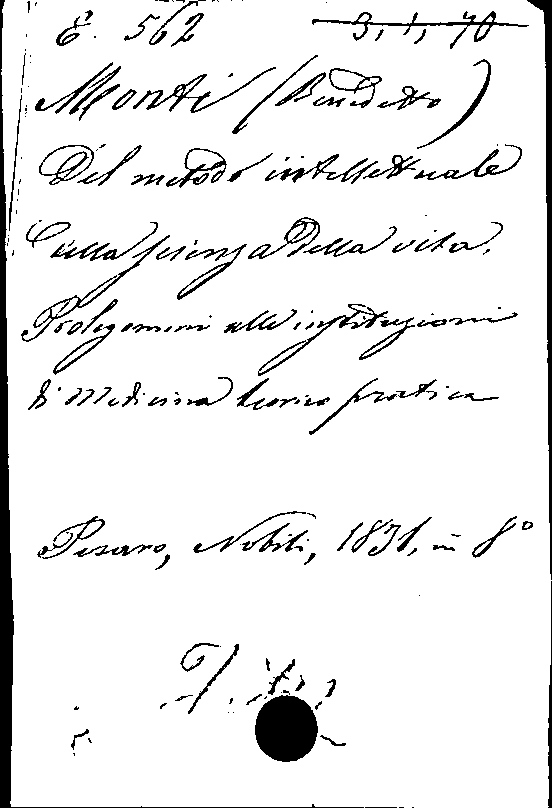 E. 562 3, 1, 70
Monti (Benedetto)
Del metodo intellettuale
sulla scienza della vita.
Prolegomeni alle instituzioni
di medicina teorico pratica
Pesaro, Nobili, 1831, in 8º